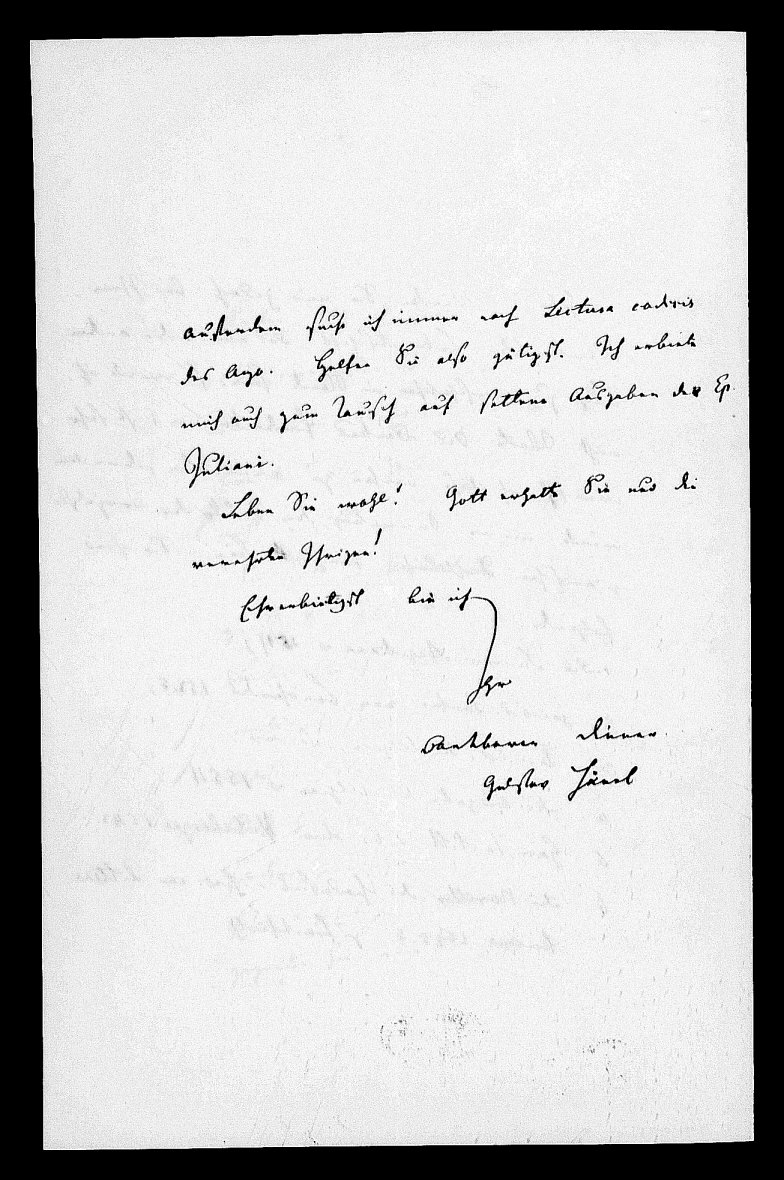 außerdem suche ich immer noch Lectura codicis
des Azo. Helfen Sie also gütigst. Ich erbiete
mich auch zum Tausch auf seltene Ausgaben der Ep.
Juliani.
Leben Sie wohl! Gott erhalte Sie und die
verehrten Ihrigen!
Ehrerbietigst bin ich
Ihr
dankbarer Diener
Gustav Hänel